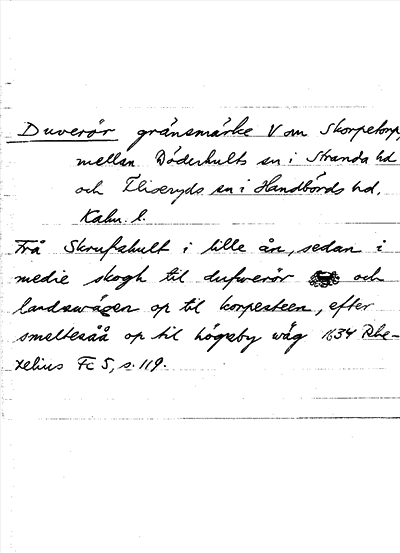 Duverör gränsmärke V om Skorpetorp,
mellan Döderhults sn i Stranda hd
och Fliseryds sn i Handbörds hd,
Kalm. l.
Frå Skrufshult i lille ån, sedan i
medie skogh til dufwerör och
landzwägen op til korpesteen, efter
smeltesåå op til högsby wäg 1634 Rhe-
zelius Fc 5, s. 119.